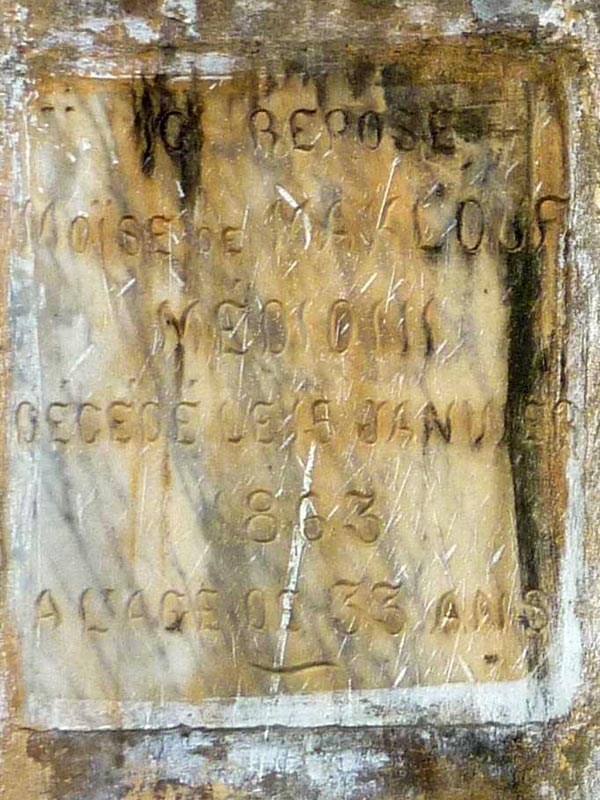 ICI REPOSE
MOÏSE DE MAKLOUF
MÉDIONI
DÉCÉDÉ LE 18 JANVIER
1863
A L'AGE DE 33 ANS